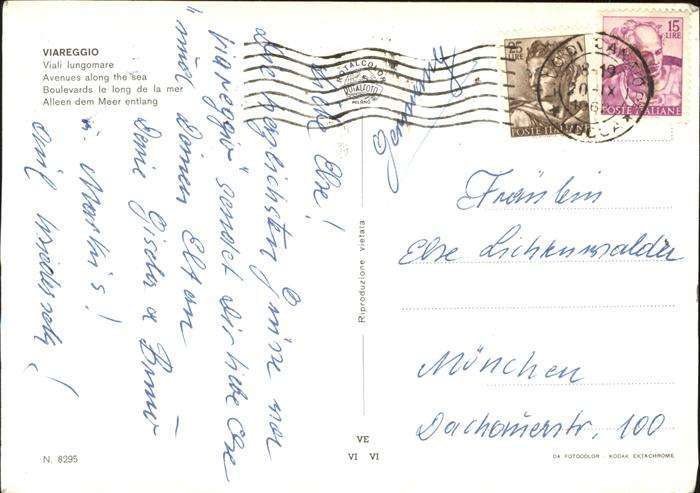 VIAREGGIO
Viali lungomare
Avenues along the sea
Boulevards le long de la mer
Alleen dem Meer entlang
Liebe Else!
Die herzlichsten Grüße von
Viareggio" sendet dir liebe Else
und Deinen Eltern
Deine Gisela u
u. Markus!
Auf Wiedersehn!
Germania
ROTALCOLOR
ROTALFOTO
MILANO
15 LIRE
POSTE ITALIANE
15 LIRE
POSTE ITALIANE
Fräulein
Else Lichtenwalder
München
Dachauerstr, 100
Riproduzione vietata
VE
VI VI
N. 8295
DA FOTOCOLOR - KODAK EKTACHROME